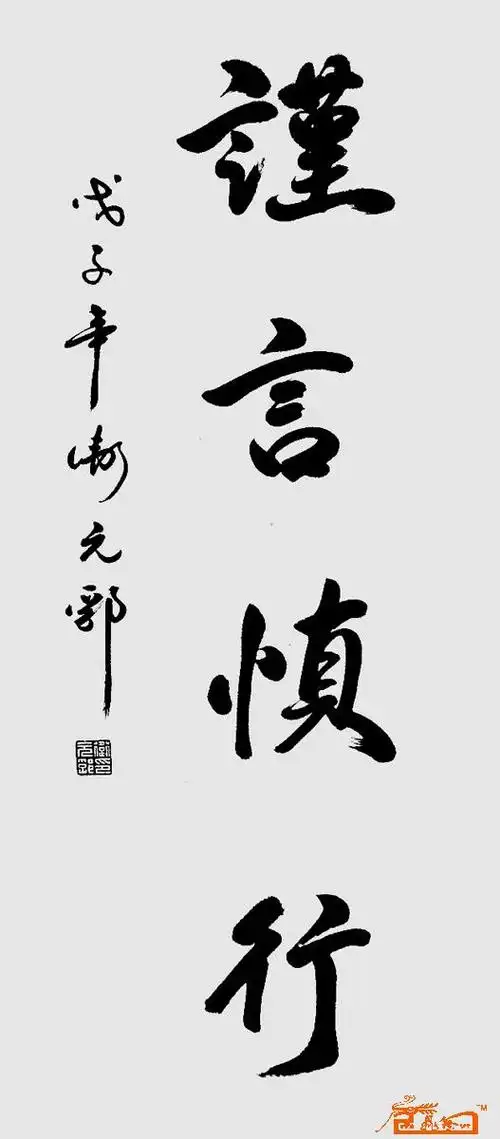 謹言慎行
戊子年 元郭